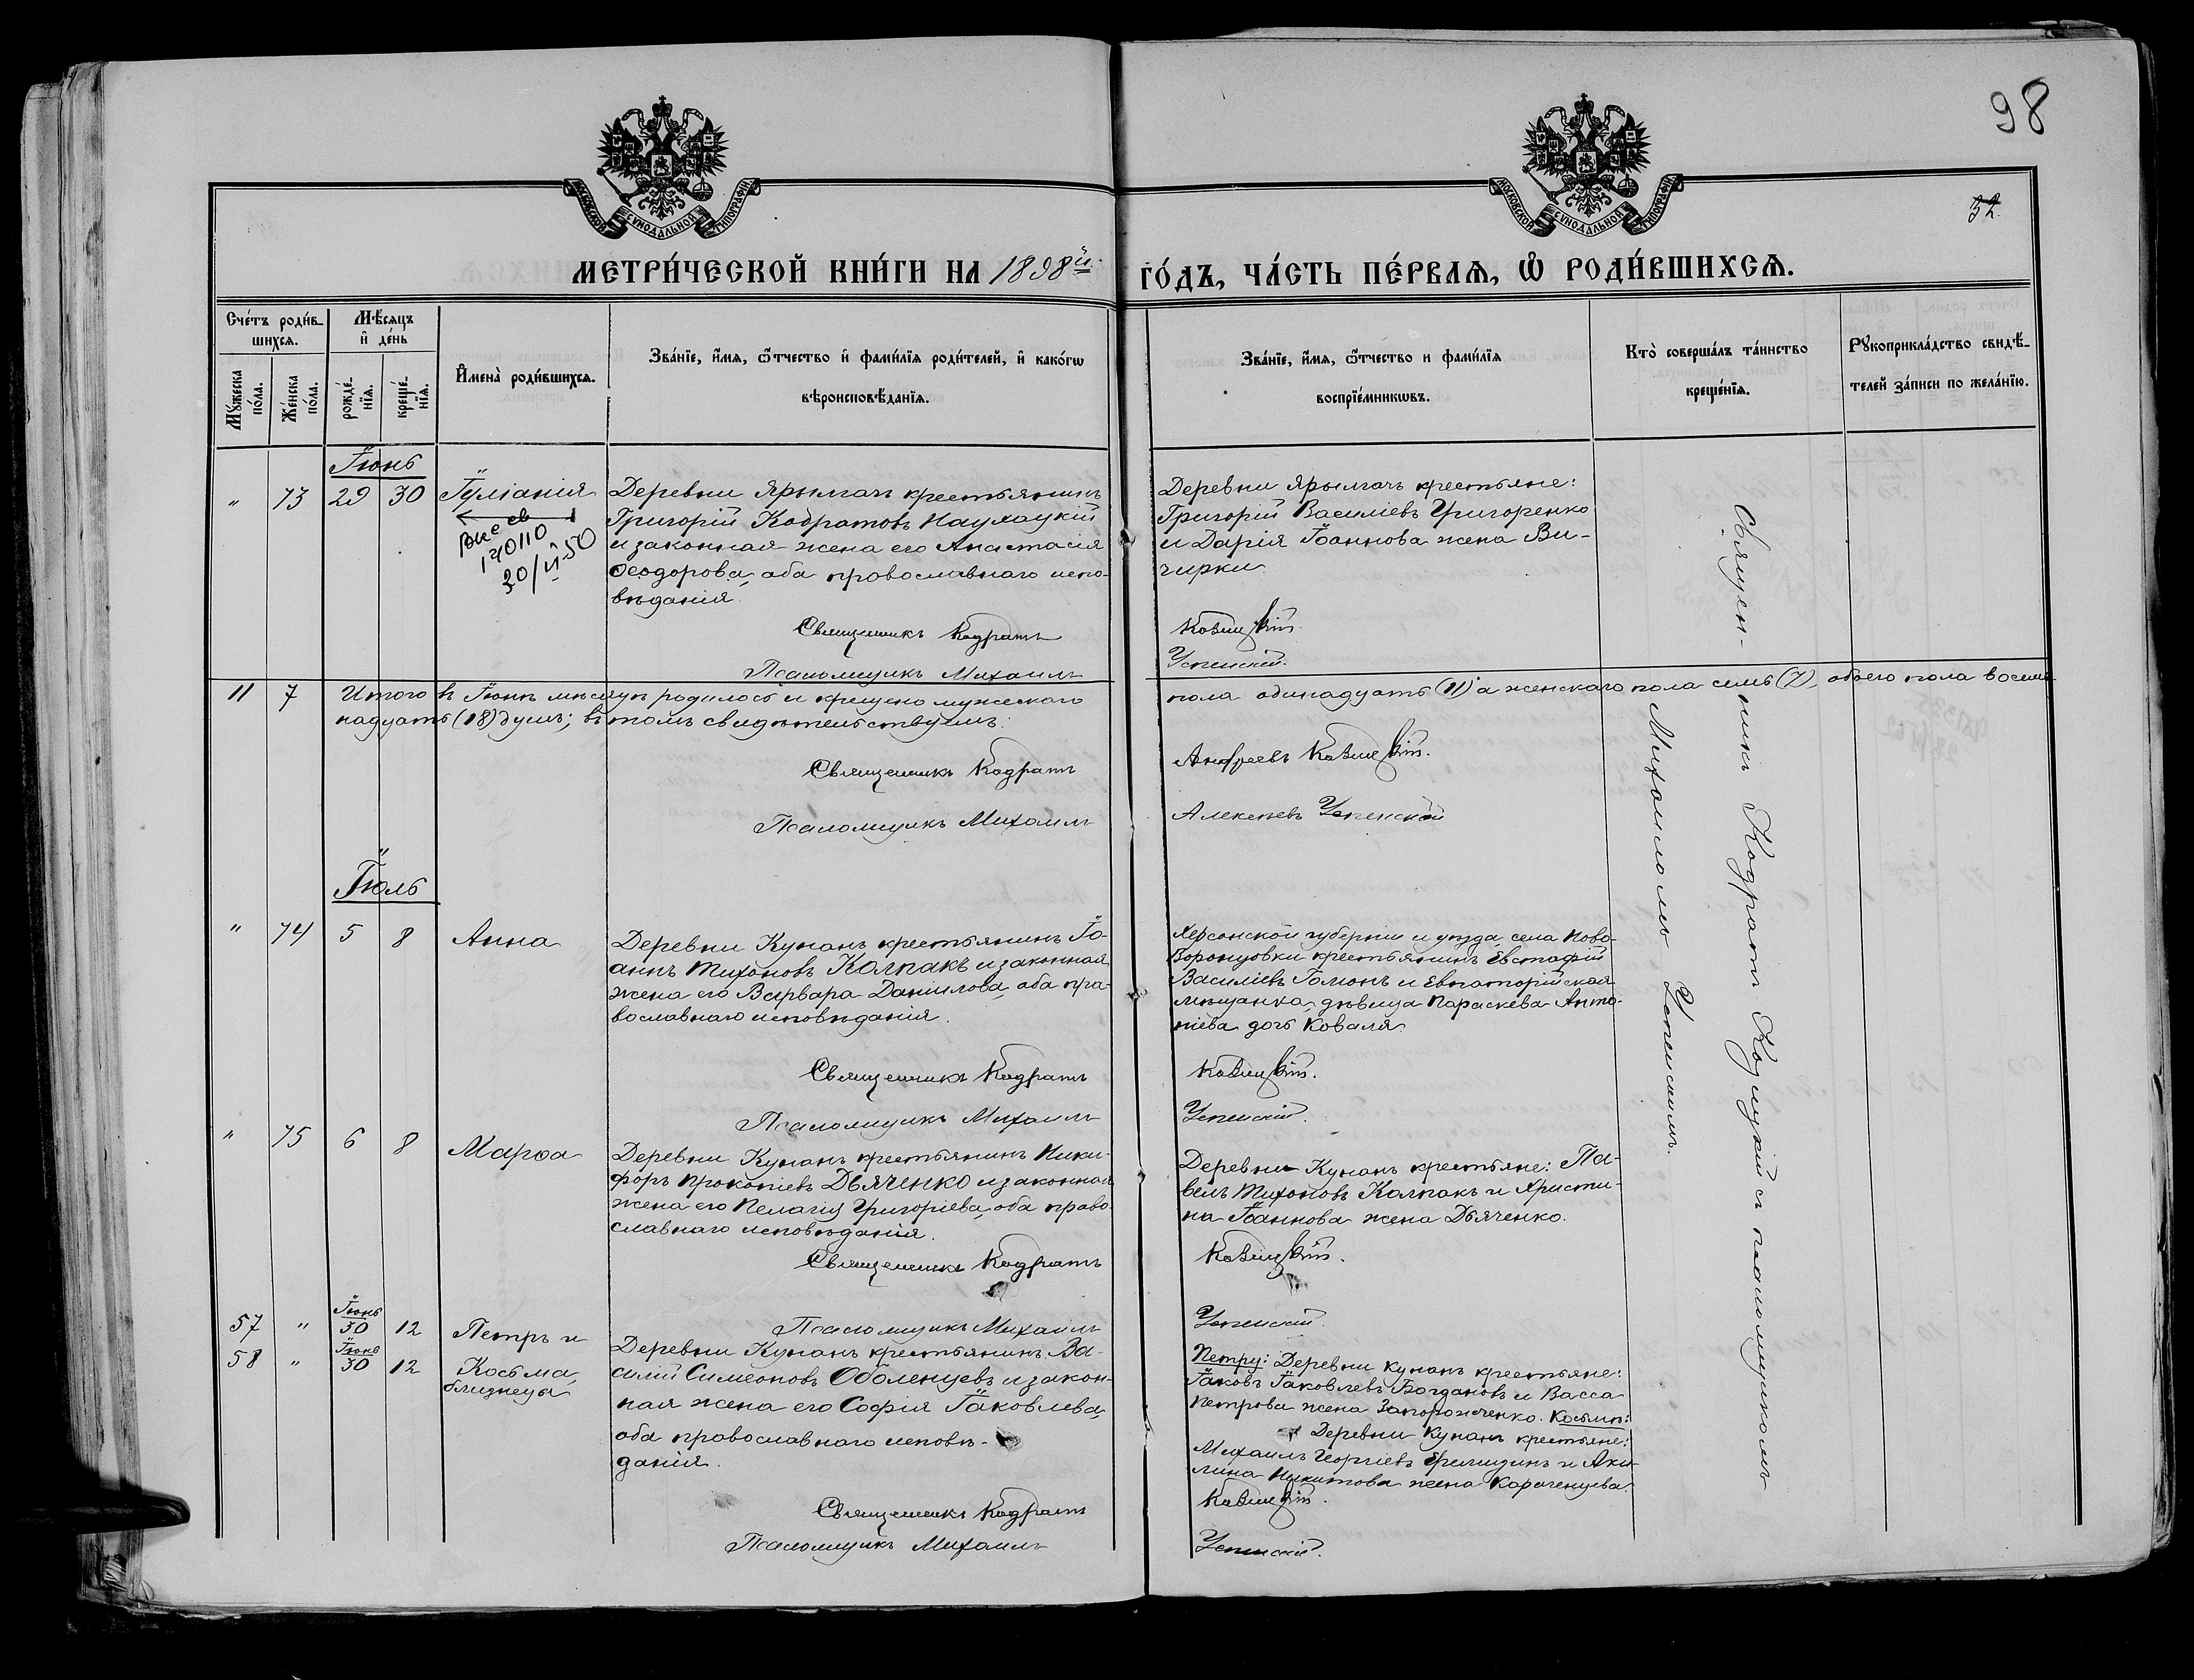 98
32.
МОСКОВСКОЙ СѴНОДАЛЬНОЙ ТИПОГРАФІИ
МОСКОВСКОЙ СѴНОДАЛЬНОЙ ТИПОГРАФІИ
МЕТРИ́ЧЕСКОЙ КНИ́ГИ НА 1898й ГО́ДЪ, ЧА́СТЬ ПЕ́РВАЯ, Ѡ҆ РОДИ́ВШИХСѦ.
Сче́тъ роди́в-
шихся.
Мѣ́сяцъ
и҆ де́нь
Мꙋ́жеска по́ла.
Же́нска по́ла.
рожде́-нїѧ.
креще́-нїѧ.
И҆мена̀ роди́вшихся.
Зва́нїе, и҆́мя, ѻ҆́тчество и҆ фами́лїя роди́телей, и҆ како́гѡ
вѣроисповѣ́данїя.
Зва́нїе, и҆́мя, ѻ҆́тчество и фами́лїя
воспрїе́мникѡвъ.
Кто̀ соверша́лъ та́инство
креще́нїя.
Рꙋкоприкла́дство свидѣ́-
телей за́писи по жела́нїю.
Іюнь
" 73 29 30 Іуліанія
140110
20/II-50
Деревни Ярылгачъ крестьянинъ
Григорій Кодратовъ
и законная жена его Анастасія
Ѳеодорова, оба православнаго испо-
вѣданія.
Священникъ Кодратъ
Псаломщикъ Михаилъ
Деревни Ярылгачъ крестьяне:
Григорій Василіевъ Григоренко
и Дарія Іоаннова жена Ви-
чирки.
Успенскій.
11 7 Итого въ Іюнѣ мѣсяцѣ родилось и крещено мужескаго пола одинадцать (11) а женскаго пола семь (7), обоего пола восем-
надцать (18) душъ; въ томъ свидѣтельствуемъ:
Священникъ Кодратъ Андреевъ
Псаломщикъ Михаилъ Алексѣевъ Успенскій
Іюль
" 74 5 8 Анна
Деревни Кунанъ крестьянинъ Іо-
аннъ Тихоновъ Колпакъ и законная
жена его Варвара Даніилова, оба пра-
вославнаго исповѣданія.
Священникъ Кодратъ
Псаломщикъ Михаилъ
Херсонской губерніи и уѣзда, села Ново-
Воронцовки крестьянинъ Евстафій
Василіевъ Гомонъ и Евпаторійская
мѣщанка, дѣвица Параскева Анто-
ніева дочь Коваля.
Успенскій.
" 75 6 8 Марѳа
Деревни Кунанъ крестьянинъ Ники-
форъ Прокопіевъ Дьяченко и законная
жена его Пелагія Григоріева, оба право-
славнаго исповѣданія.
Священникъ Кодратъ
Псаломщикъ Михаилъ
Деревни Кунанъ крестьяне: Па-
велъ Тихоновъ Колпакъ и Христи-
на Іоаннова жена Дьяченко.
Успенскій.
57 " Іюнь 30 12 Петръ и
58 " Іюнь 30 12 Косьма,
близнецы
Деревни Кунанъ крестьянинъ Ва-
силій Симеоновъ Оболенцевъ и закон-
ная жена его Софія Іаковлева,
оба православнаго исповѣ-
данія.
Священникъ Кодратъ
Псаломщикъ Михаилъ
Петру: Деревни Кунанъ крестьяне:
Іаковъ Іаковлевъ Богдановъ и Васса
Петрова жена Запорожченко. Косьмѣ:
Деревни Кунанъ крестьяне:
Михаилъ Георгіевъ и Аки-
лина Никитова жена Караченцева.
Успенскій.
Священ-
никъ Кодратъ съ псаломщикомъ
Михаиломъ Успенскимъ.